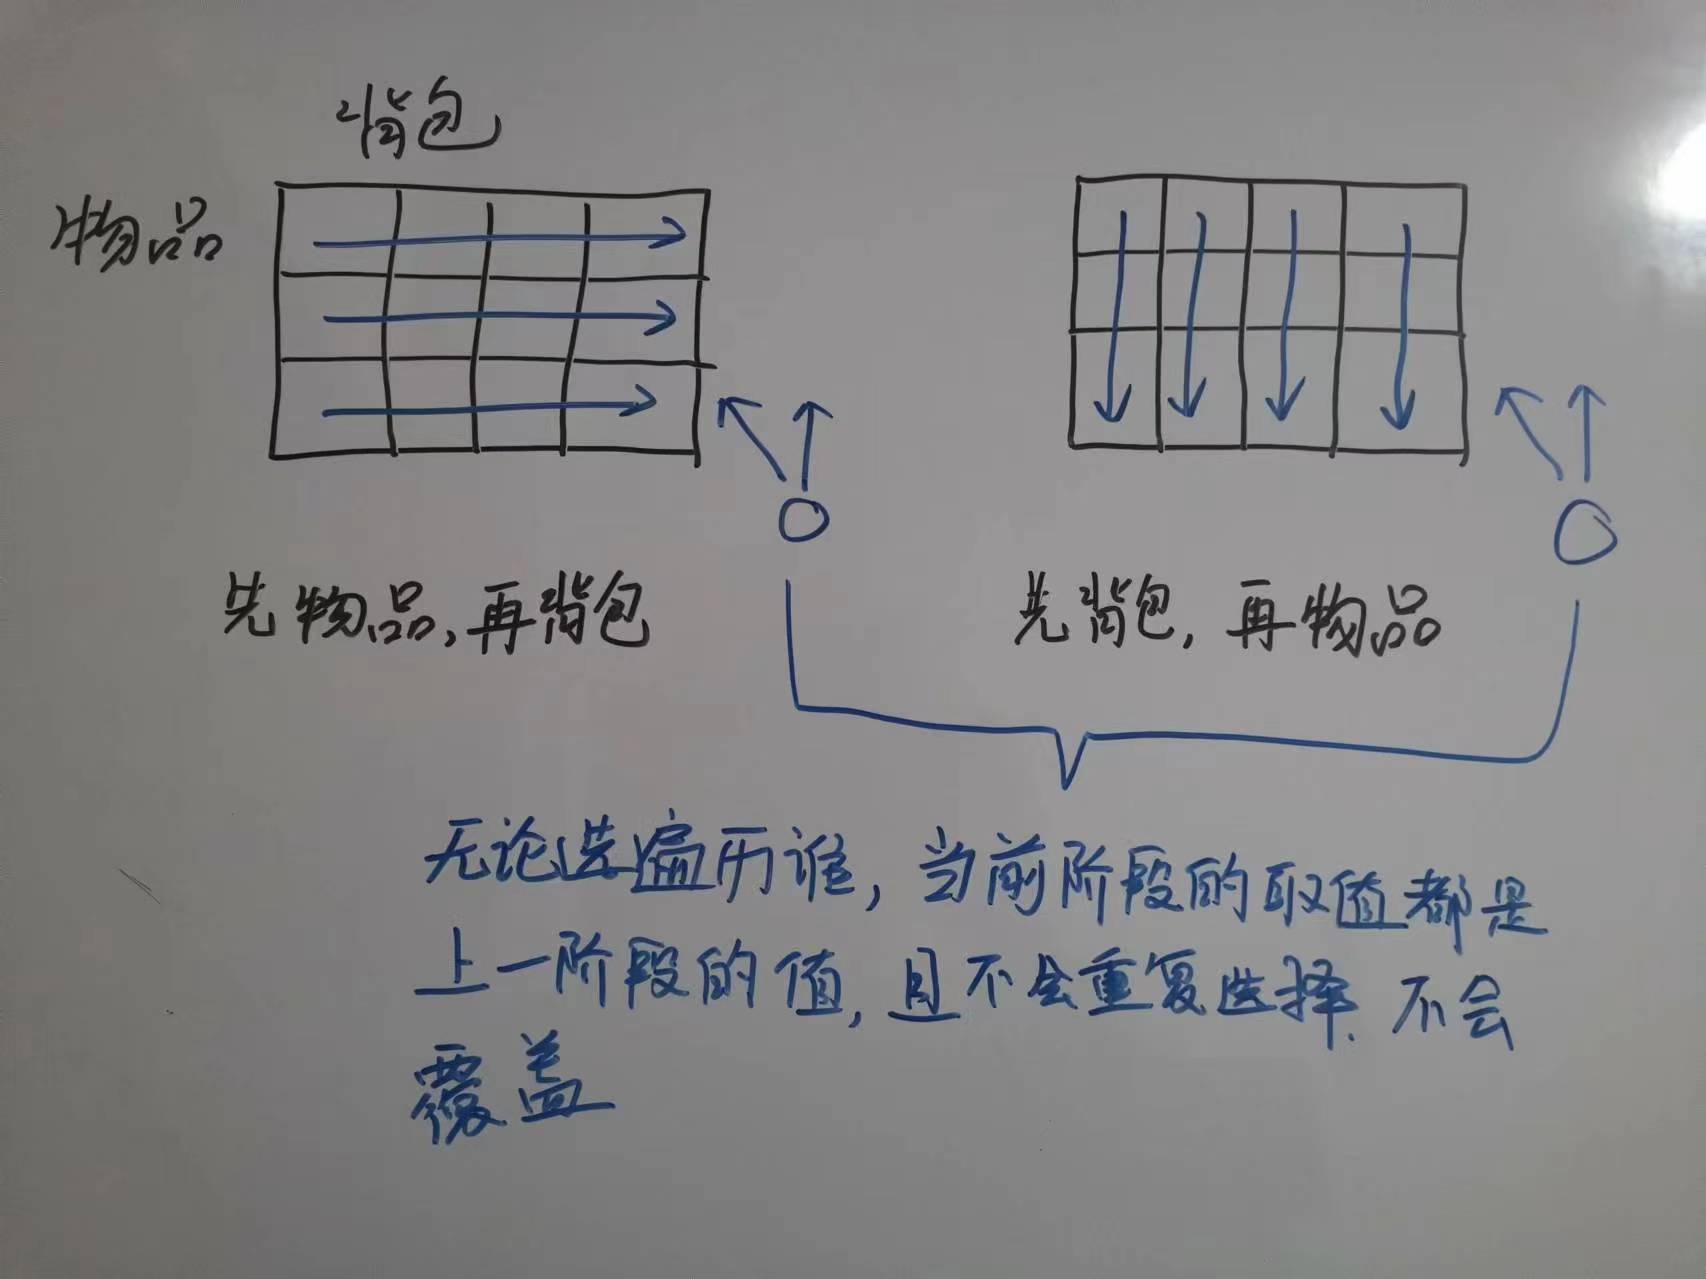 背包
物品
先物品,再背包
先背包,再物品
无论先遍历谁,当前阶段的取值都是
上一阶段的值,且不会重复选择.不会
覆盖